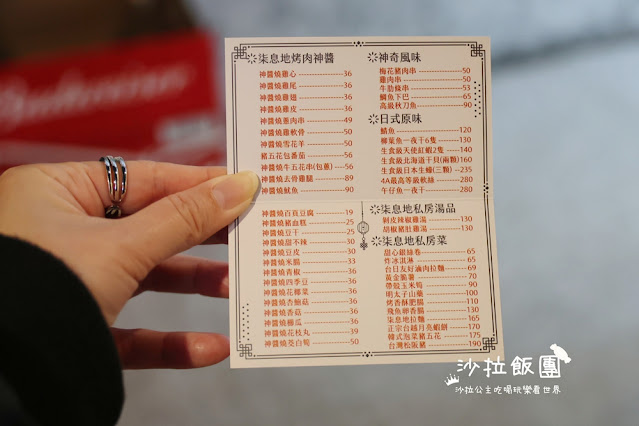 Budweiser
柒息地烤肉神醬
神醬燒雞心 36
神醬燒雞尾 36
神醬燒雞翅 36
神醬燒雞皮 36
神醬燒蔥肉串 49
神醬燒雞軟骨 50
神醬燒雪花羊 50
豬五花包番茄 56
神醬燒牛五花串(包蔥) 56
神醬燒去骨雞腿 89
神醬燒魷魚 90
神醬燒百頁豆腐 19
神醬燒豬血糕 25
神醬燒豆干 25
神醬燒甜不辣 30
神醬燒豆皮 30
神醬燒米腸 33
神醬燒青椒 36
神醬燒四季豆 36
神醬燒花椰菜 36
神醬燒杏鮑菇 36
神醬燒香菇 36
神醬燒櫛瓜 36
神醬燒花枝丸 39
神醬燒茭白筍 50
神奇風味
梅花豬肉串 50
雞肉串 50
牛肋條串 53
鯛魚下巴 65
高級秋刀魚 90
日式原味
鯖魚 120
柳葉魚一夜干6隻 130
生食級天使紅蝦2隻 140
生食級北海道干貝(兩顆) 160
生食級日本生蠔(三顆) 235
4A最高等級軟絲 280
午仔魚一夜干 280
柒息地私房湯品
剝皮辣椒雞湯 130
胡椒豬肚雞湯 130
柒息地私房菜
甜心銀絲卷 65
炸冰淇淋 65
台日友好滷肉拉麵 69
黃金脆薯 70
帶殼玉米筍 90
明太子山藥 100
烤香酥肥腸 110
飛魚卵香腸 130
柒息地拉麵 165
正宗台越月亮蝦餅 170
韓式泡菜豬五花 175
台灣松阪豬 190
沙拉飯團
沙拉公主吃喝玩樂看世界